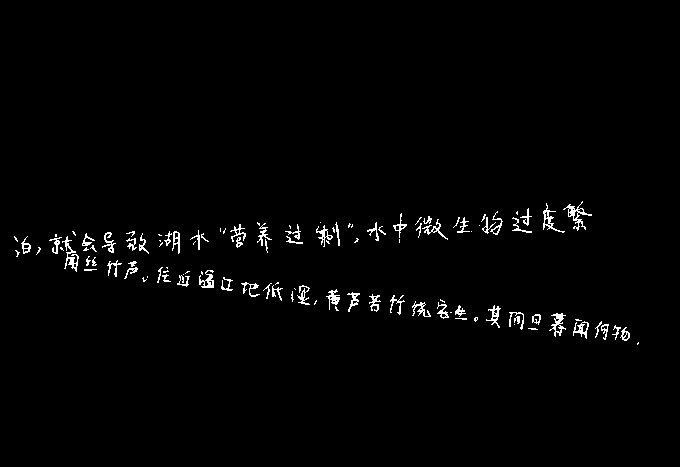 泊，就会导致湖水“营养过剩”，水中微生物过度繁
闻丝竹声。住近湓江地低湿，黄芦苦竹绕宅生。其间旦暮闻何物，